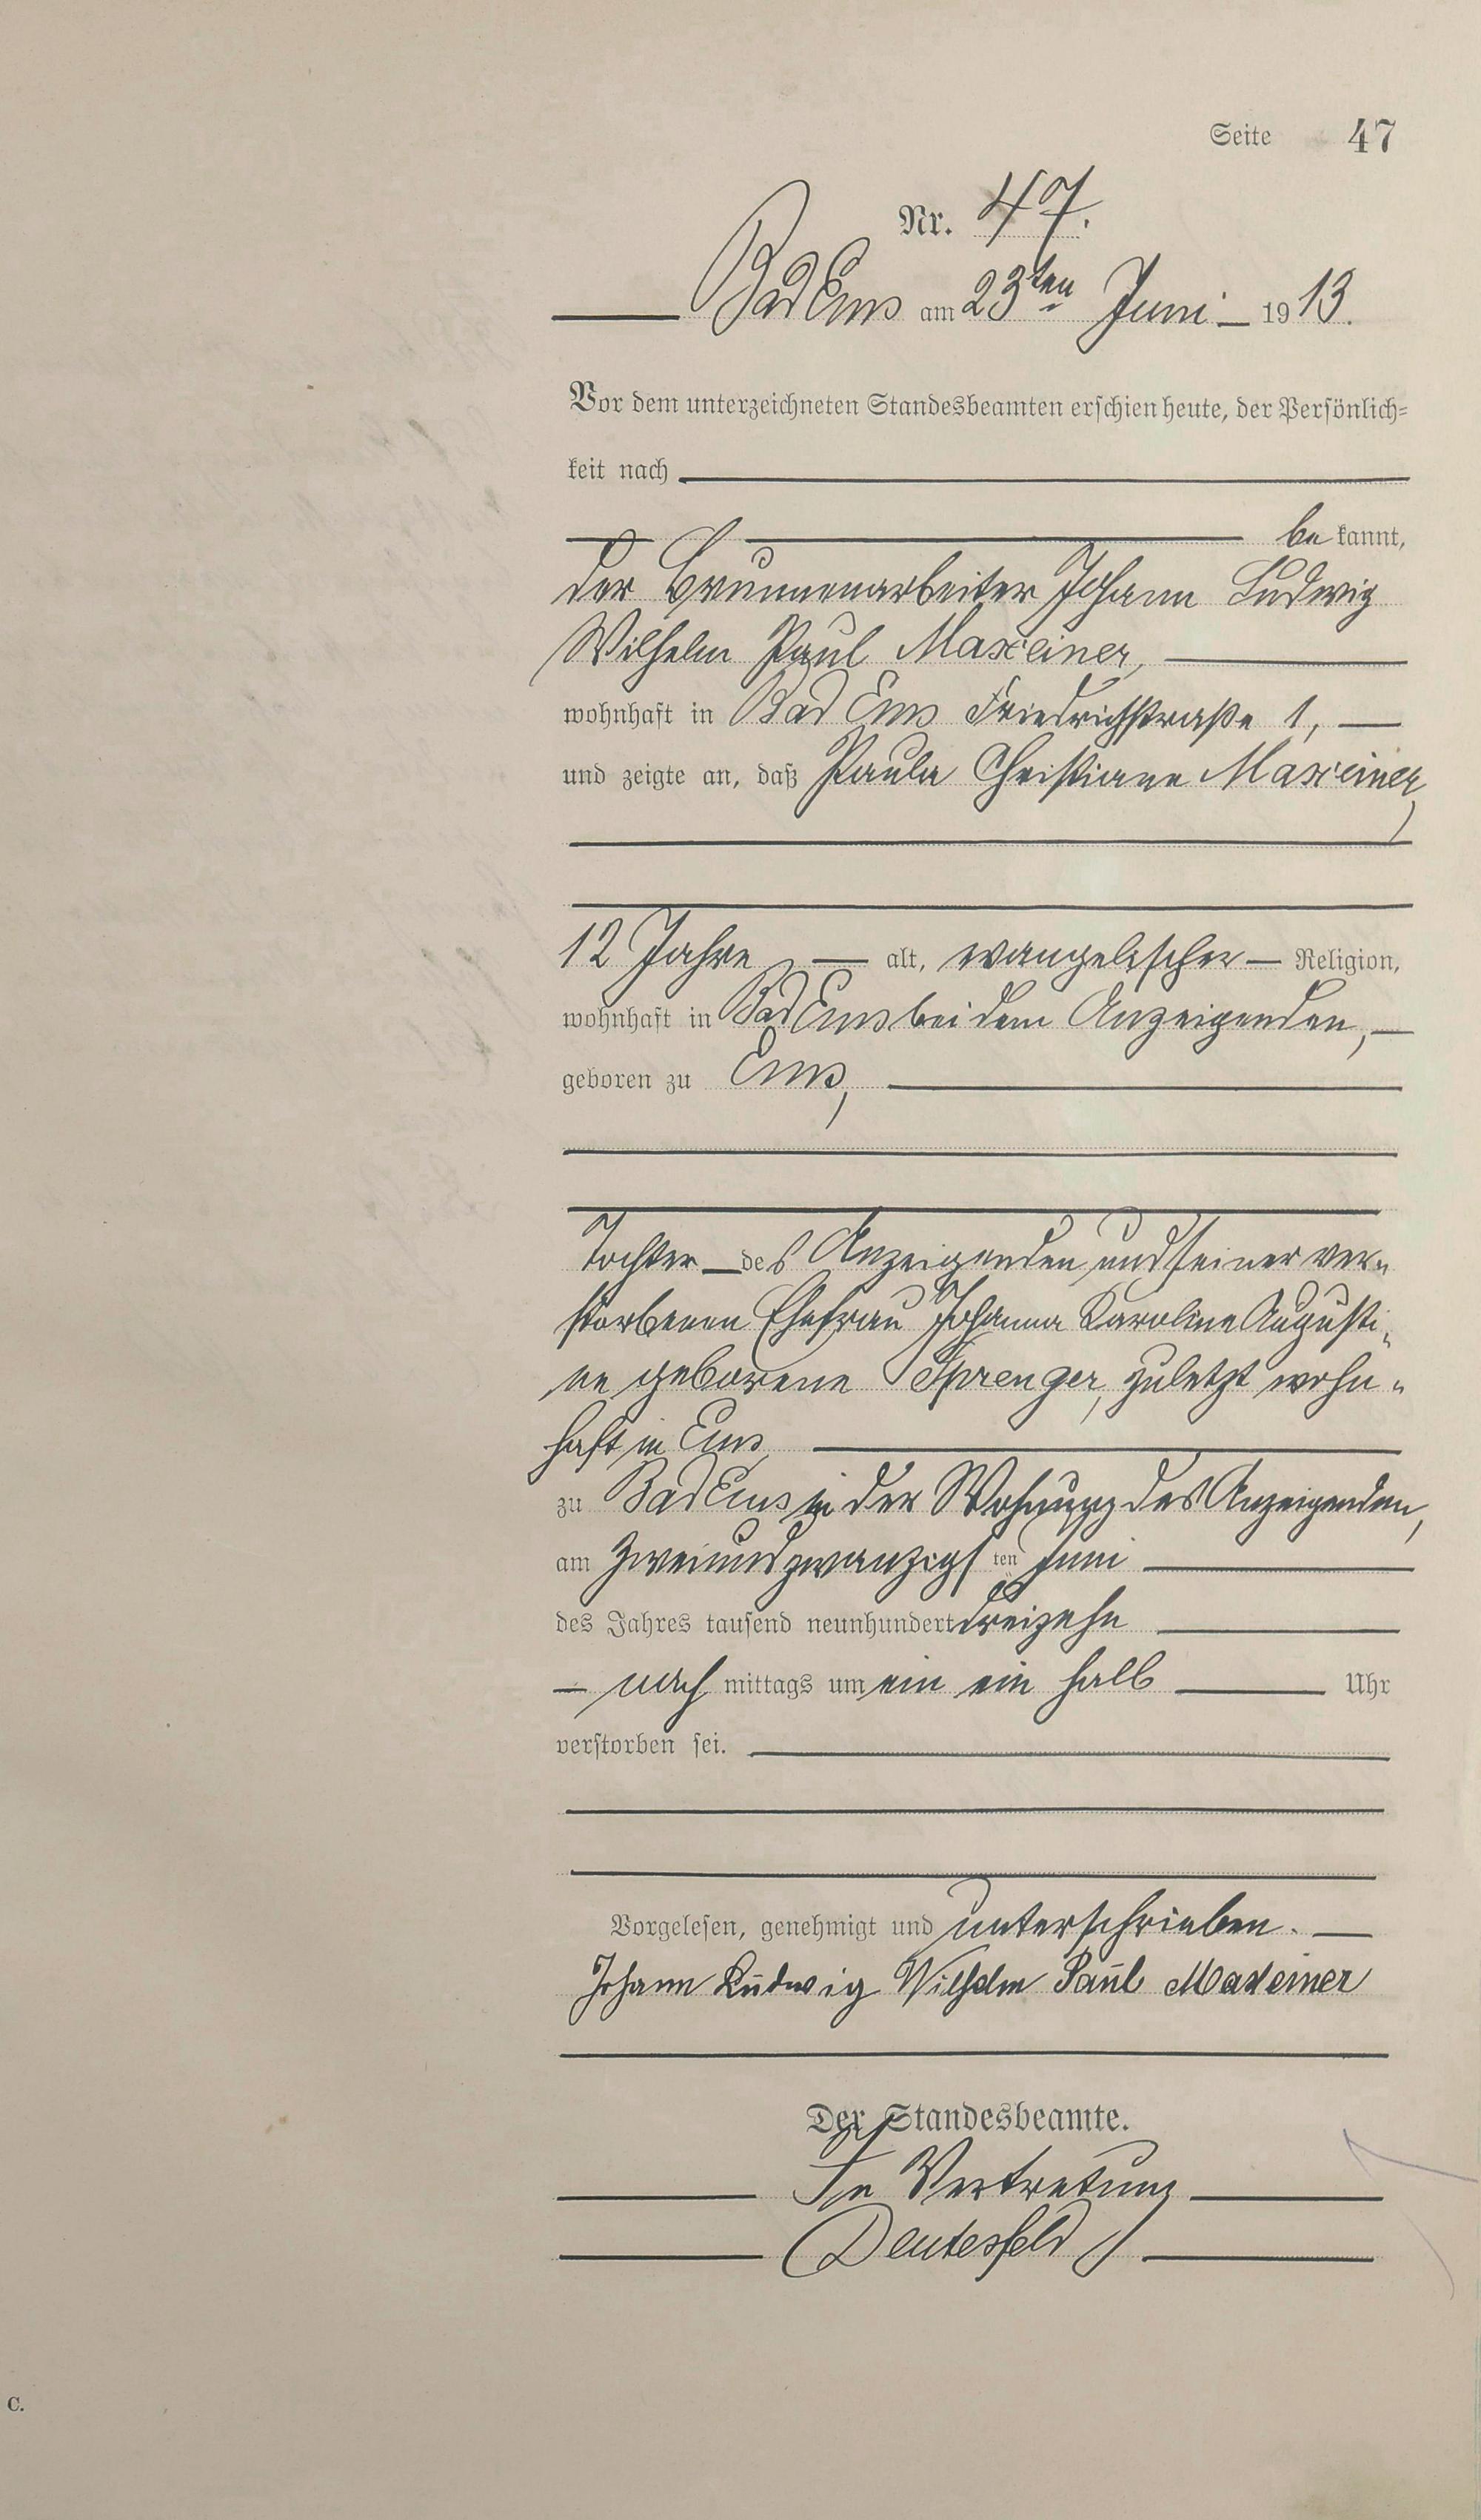 Seite 47
Nr. 47.
Bad Ems am 23ten Juni 1913.
Vor dem unterzeichneten Standesbeamten erschien heute, der Persönlich=
keit nach
bekannt,
der Brunnenarbeiter Johann Ludwig
Wilhelm Paul Maxeiner,
wohnhaft in Bad Ems Friedrichstraße 1,
und zeigte an, daß Paula Christiane Maxeiner,
12 Jahre alt, evangelischer Religion,
wohnhaft in Bad Ems bei dem Anzeigenden,
geboren zu Ems,
Tochter des Anzeigenden und seiner ver„
storbenen Ehefrau Johanna Karoline Augusti„
ne geborene Sprenger, zuletzt wohn„
haft in Ems
zu Bad Ems in der Wohnung des Anzeigenden,
am zweiundzwanzigsten Juni
des Jahres tausend neunhundert dreizehn
nachmittags um ein ein halb Uhr
verstorben sei.
Vorgelesen, genehmigt und unterschrieben.
Johann Ludwig Wilhelm Paul Maxeiner
Der Standesbeamte.
In Vertretung
Deutesfeld
C.